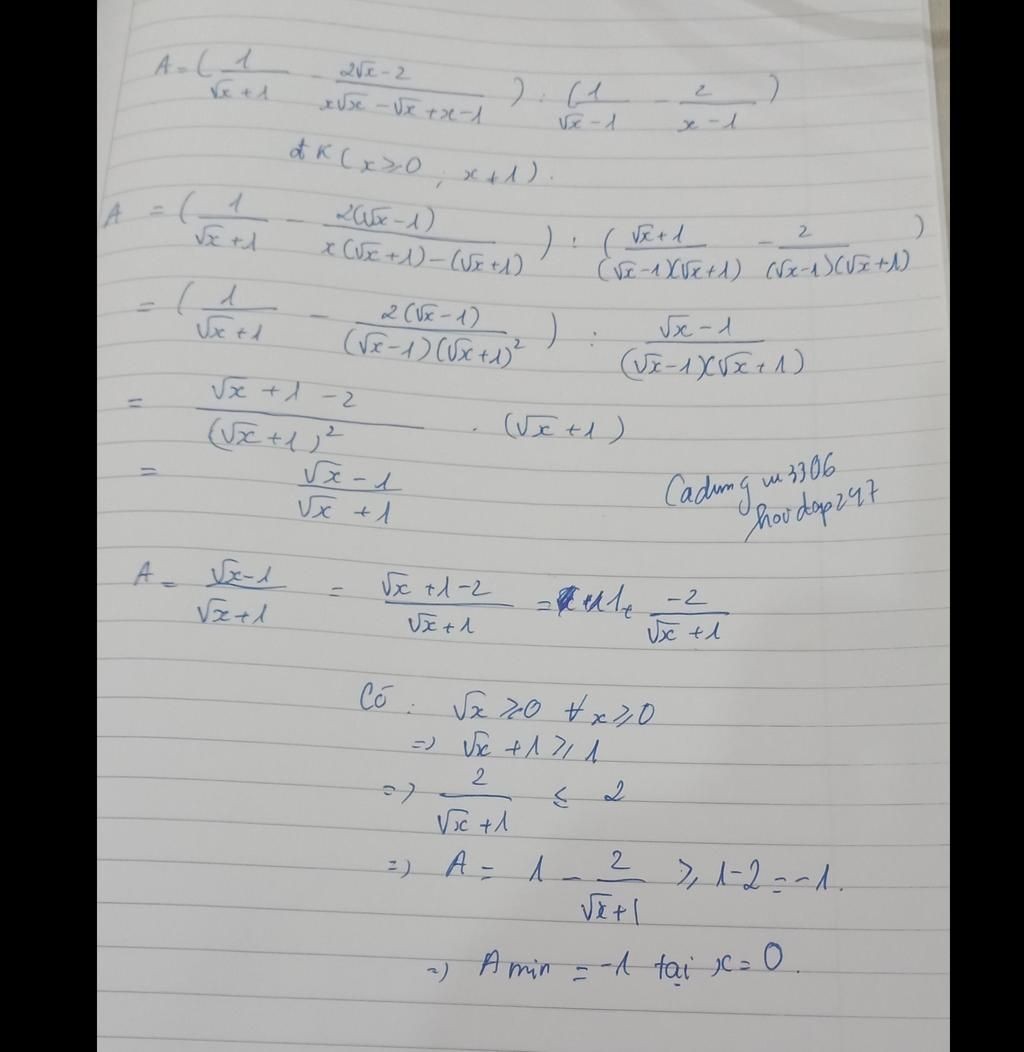 A = ( 1/(√x + 1) - (2√x - 2)/(x√x - √x + x - 1) ) : ( 1/(√x - 1) - 2/(x - 1) )
đK ( x ≥ 0 ; x + 1 ).
A = ( 1/(√x + 1) - 2(√x - 1)/(x(√x + 1) - (√x + 1)) ) : ( (√x + 1)/((√x - 1)(√x + 1)) - 2/((√x - 1)(√x + 1)) )
= ( 1/(√x + 1) - 2(√x - 1)/((√x - 1)(√x + 1)²) ) : (√x - 1)/((√x - 1)(√x + 1))
= (√x + 1 - 2)/(√x + 1)² . (√x + 1)
= (√x - 1)/(√x + 1)
hoidap247
A = (√x - 1)/(√x + 1) = (√x + 1 - 2)/(√x + 1) = 1 + -2/(√x + 1)
Có : √x ≥ 0 ∀ x ≥ 0
=> √x + 1 ≥ 1
=> 2/(√x + 1) ≤ 2
=> A = 1 - 2/(√x + 1) ≥ 1 - 2 = -1.
=> A min = -1 tại x = 0.